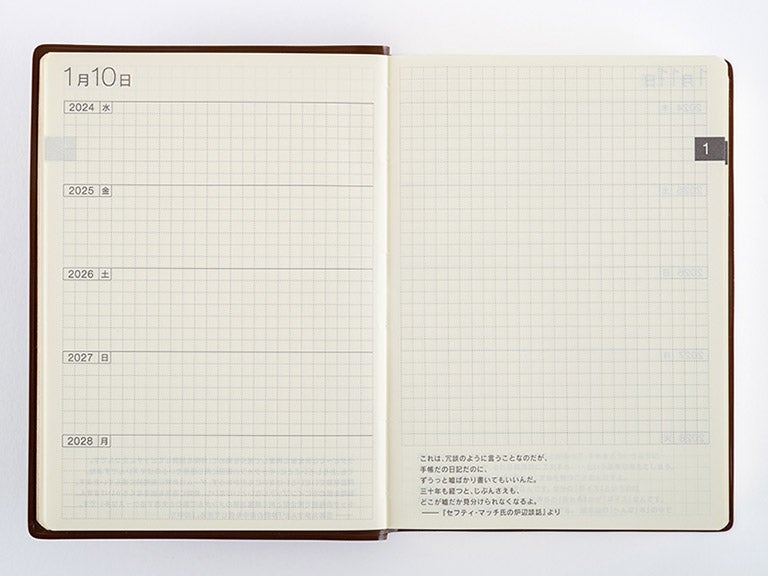 1月10日
2024 水
2025 金
2026 土
2027 日
2028 月
1
これは、冗談のように言うことなのだが、
手帳だの日記だのに、
ずうっと嘘ばかり書いてもいいんだ。
三十年も経つと、じぶんさえも、
どこが嘘だか見分けられなくなるよ。
――『セフティ・マッチ氏の炉辺談話』より